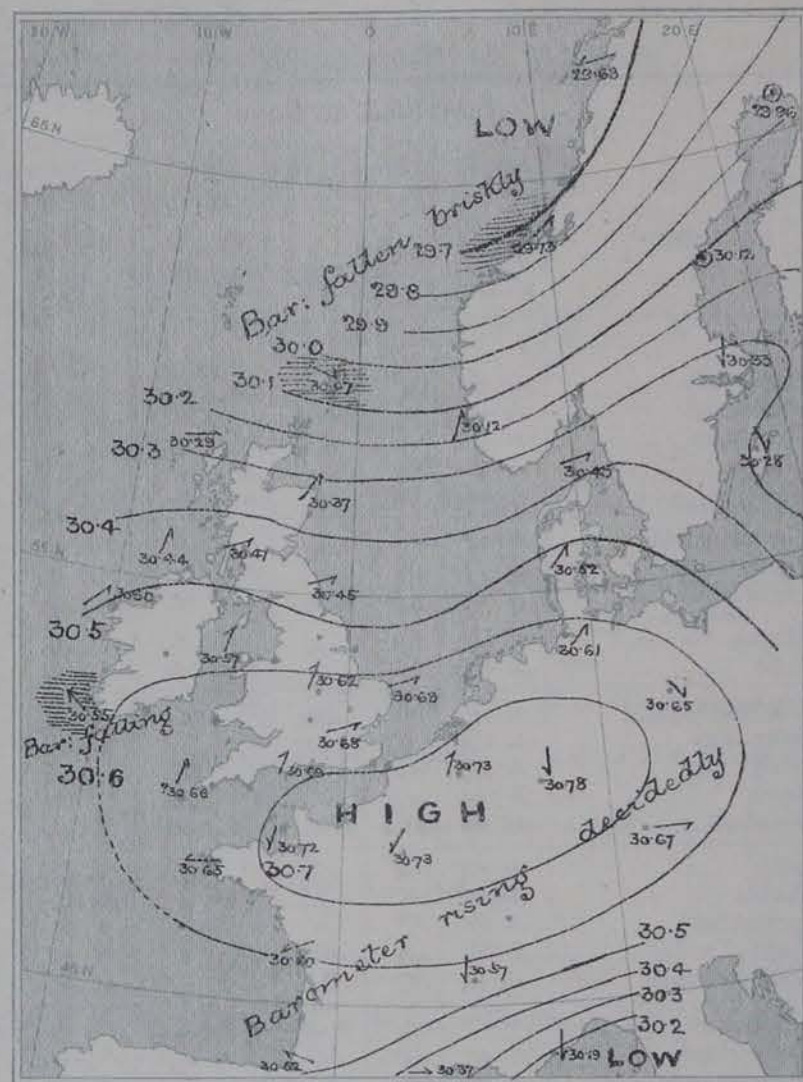 20 W 10 W 0 10 E 20 E
29·63
65 N
LOW
29·96
Bar: fallen briskly
29·7
29·73
30·12
29·8
29·9
30·0
30·1
30·07
30·33
30·2
30·12
30·29
30·3
30·28
30·45
30·37
30·4
55 N
30·44
30·41
30·52
30·50
30·45
30·5
30·57
30·61
30·62
30·63
30·65
30·55
Bar: falling
30·68
30·6
30·66
30·73
30·78
HIGH
decidedly
30·72
30·73
30·67
30·65
30·7
Barometer rising
30·5
30·57
30·4
45 N
30·3
30·2
30·52
30·37
30·19
LOW